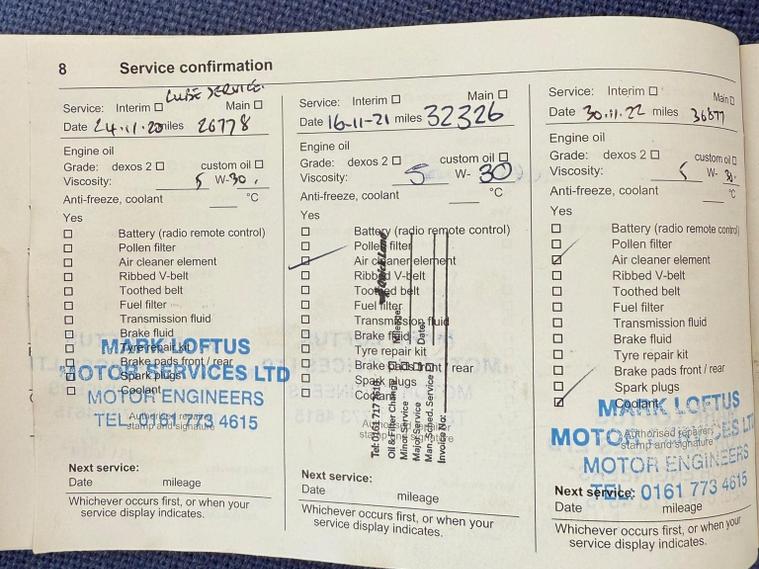 8 Service confirmation
LUBE SERVICE.
Service: Interim Main
Date 24.11.20 miles 26778
Engine oil
Grade: dexos 2 custom oil
Viscosity: 5 W-30.
Anti-freeze, coolant °C
Yes
Battery (radio remote control)
Pollen filter
Air cleaner element
Ribbed V-belt
Toothed belt
Fuel filter
Transmission fluid
Brake fluid
Tyre repair kit
Brake pads front / rear
Spark plugs
Coolant
MARK LOFTUS
MOTOR SERVICES LTD
MOTOR ENGINEERS
TEL: 0161 773 4615
Authorised repairer
stamp and signature
Next service:
Date mileage
Whichever occurs first, or when your
service display indicates.
Service: Interim Main
Date 16-11-21 miles 32326
Engine oil
Grade: dexos 2 custom oil
Viscosity: 5 W- 30
Anti-freeze, coolant °C
Yes
Battery (radio remote control)
Pollen filter
Air cleaner element
Ribbed V-belt
Toothed belt
Fuel filter
Transmission fluid
Brake fluid
Tyre repair kit
Brake pads front / rear
Spark plugs
Coolant
Tel: 0161 717
Oil & Filter Change
Mileage:
Minor Service
Date:
Major Service
Man. Sched. Service
Invoice No:
Authorised repairer
stamp and signature
Next service:
Date mileage
Whichever occurs first, or when your
service display indicates.
Service: Interim Main
Date 30.11.22 miles 36877
Engine oil
Grade: dexos 2 custom oil
Viscosity: 5 W- 30.
Anti-freeze, coolant °C
Yes
Battery (radio remote control)
Pollen filter
Air cleaner element
Ribbed V-belt
Toothed belt
Fuel filter
Transmission fluid
Brake fluid
Tyre repair kit
Brake pads front / rear
Spark plugs
Coolant
MARK LOFTUS
MOTOR SERVICES LTD
MOTOR ENGINEERS
TEL: 0161 773 4615
Authorised repairer
stamp and signature
Next service:
Date mileage
Whichever occurs first, or when your
service display indicates.